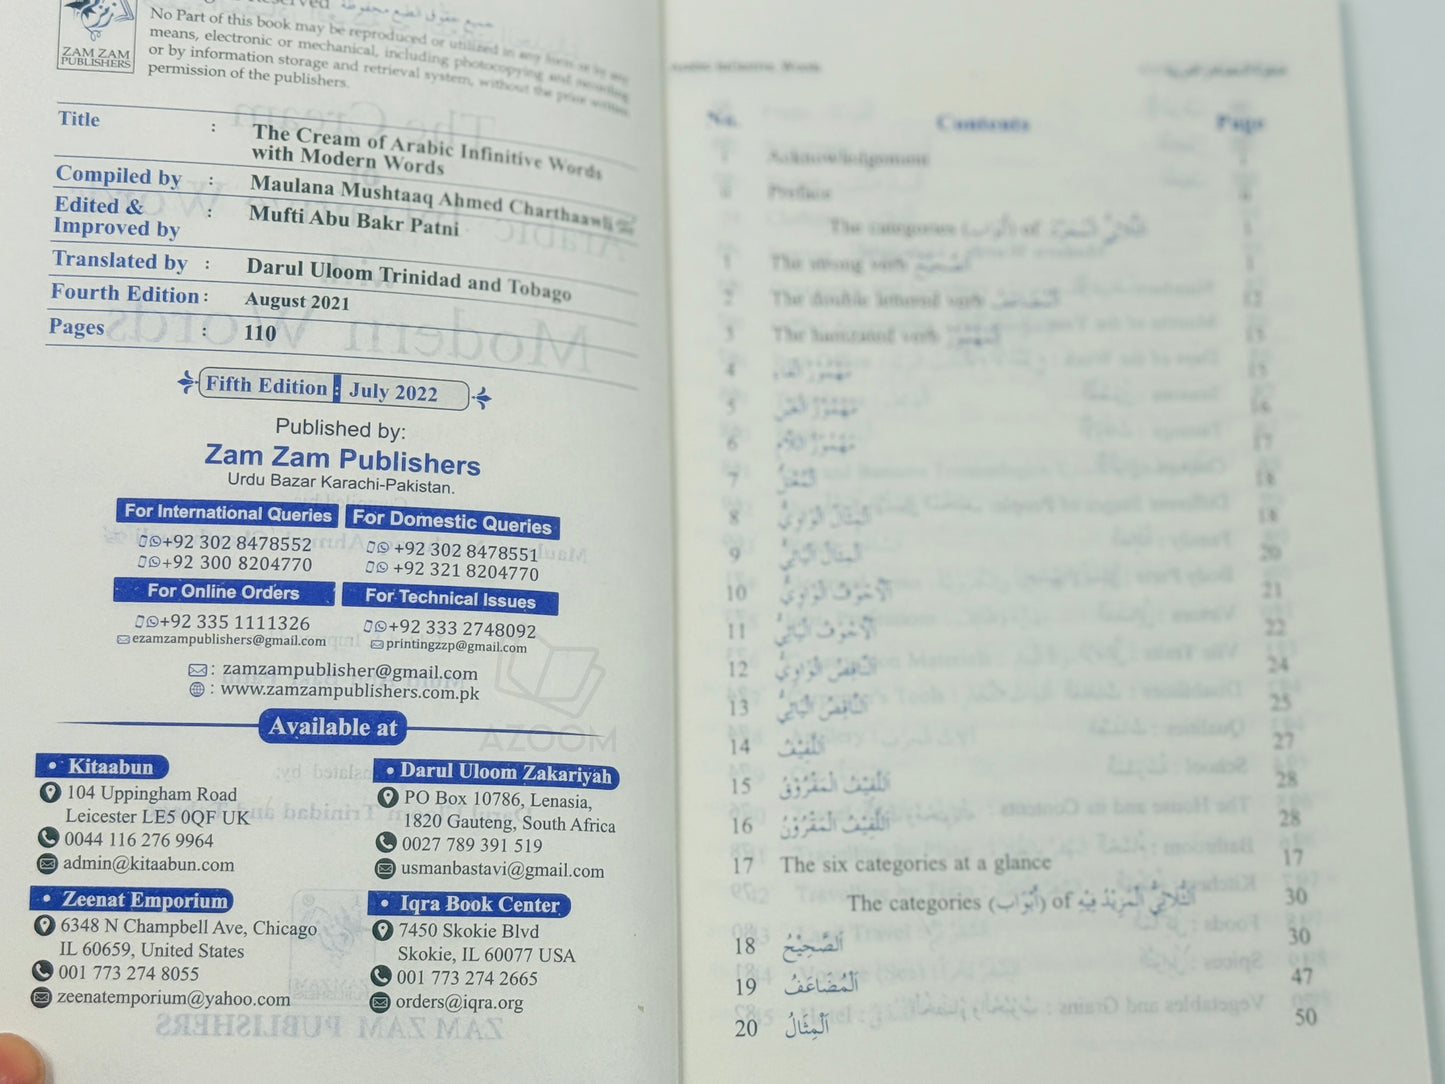 جميع حقوق الطبع محفوظة
No Part of this book may be reproduced or utilized in any form or by any
means, electronic or mechanical, including photocopying and recording
or by information storage and retrieval system, without the prior written
permission of the publishers.
ZAM ZAM
PUBLISHERS
Title : The Cream of Arabic Infinitive Words
with Modern Words
Compiled by : Maulana Mushtaaq Ahmed Charthaawli
Edited &
Improved by : Mufti Abu Bakr Patni
Translated by : Darul Uloom Trinidad and Tobago
Fourth Edition : August 2021
Pages : 110
Fifth Edition : July 2022
Published by:
Zam Zam Publishers
Urdu Bazar Karachi-Pakistan.
For International Queries
+92 302 8478552
+92 300 8204770
For Domestic Queries
+92 302 8478551
+92 321 8204770
For Online Orders
+92 335 1111326
ezamzampublishers@gmail.com
For Technical Issues
+92 333 2748092
printingzzp@gmail.com
: zamzampublisher@gmail.com
: www.zamzampublishers.com.pk
Available at
• Kitaabun
104 Uppingham Road
Leicester LE5 0QF UK
0044 116 276 9964
admin@kitaabun.com
• Darul Uloom Zakariyah
PO Box 10786, Lenasia,
1820 Gauteng, South Africa
0027 789 391 519
usmanbastavi@gmail.com
• Zeenat Emporium
6348 N Champbell Ave, Chicago
IL 60659, United States
001 773 274 8055
zeenatemporium@yahoo.com
• Iqra Book Center
7450 Skokie Blvd
Skokie, IL 60077 USA
001 773 274 2665
orders@iqra.org
AZOOM
Arabic Infinitive Words
No. Contents Page
i Acknowledgement i
ii Preface
The categories (أَبْوَاب) of اَلثُّلَاثِيُّ الْمُجَرَّدُ 1
1 The strong verb اَلصَّحِيْحُ 1
2 The double lettered verb اَلْمُضَاعَفُ 12
3 The hamzated verb اَلْمَهْمُوْزُ 15
4 مَهْمُوْزُ الْفَاءِ 15
5 مَهْمُوْزُ الْعَيْنِ 16
6 مَهْمُوْزُ اللَّامِ 17
7 اَلْمُعْتَلُّ 18
8 اَلْمِثَالُ الْوَاوِيُّ 18
9 اَلْمِثَالُ الْيَائِيُّ 20
10 اَلْأَجْوَفُ الْوَاوِيُّ 21
11 اَلْأَجْوَفُ الْيَائِيُّ 22
12 اَلنَّاقِصُ الْوَاوِيُّ 24
13 اَلنَّاقِصُ الْيَائِيُّ 25
14 اَللَّفِيْفُ 27
15 اَللَّفِيْفُ الْمَفْرُوْقُ 28
16 اَللَّفِيْفُ الْمَقْرُوْنُ 28
17 The six categories at a glance 17
The categories (أَبْوَاب) of اَلثُّلَاثِيُّ الْمَزِيْدُ فِيْهِ 30
18 اَلصَّحِيْحُ 30
19 اَلْمُضَاعَفُ 47
20 اَلْمِثَالُ 50